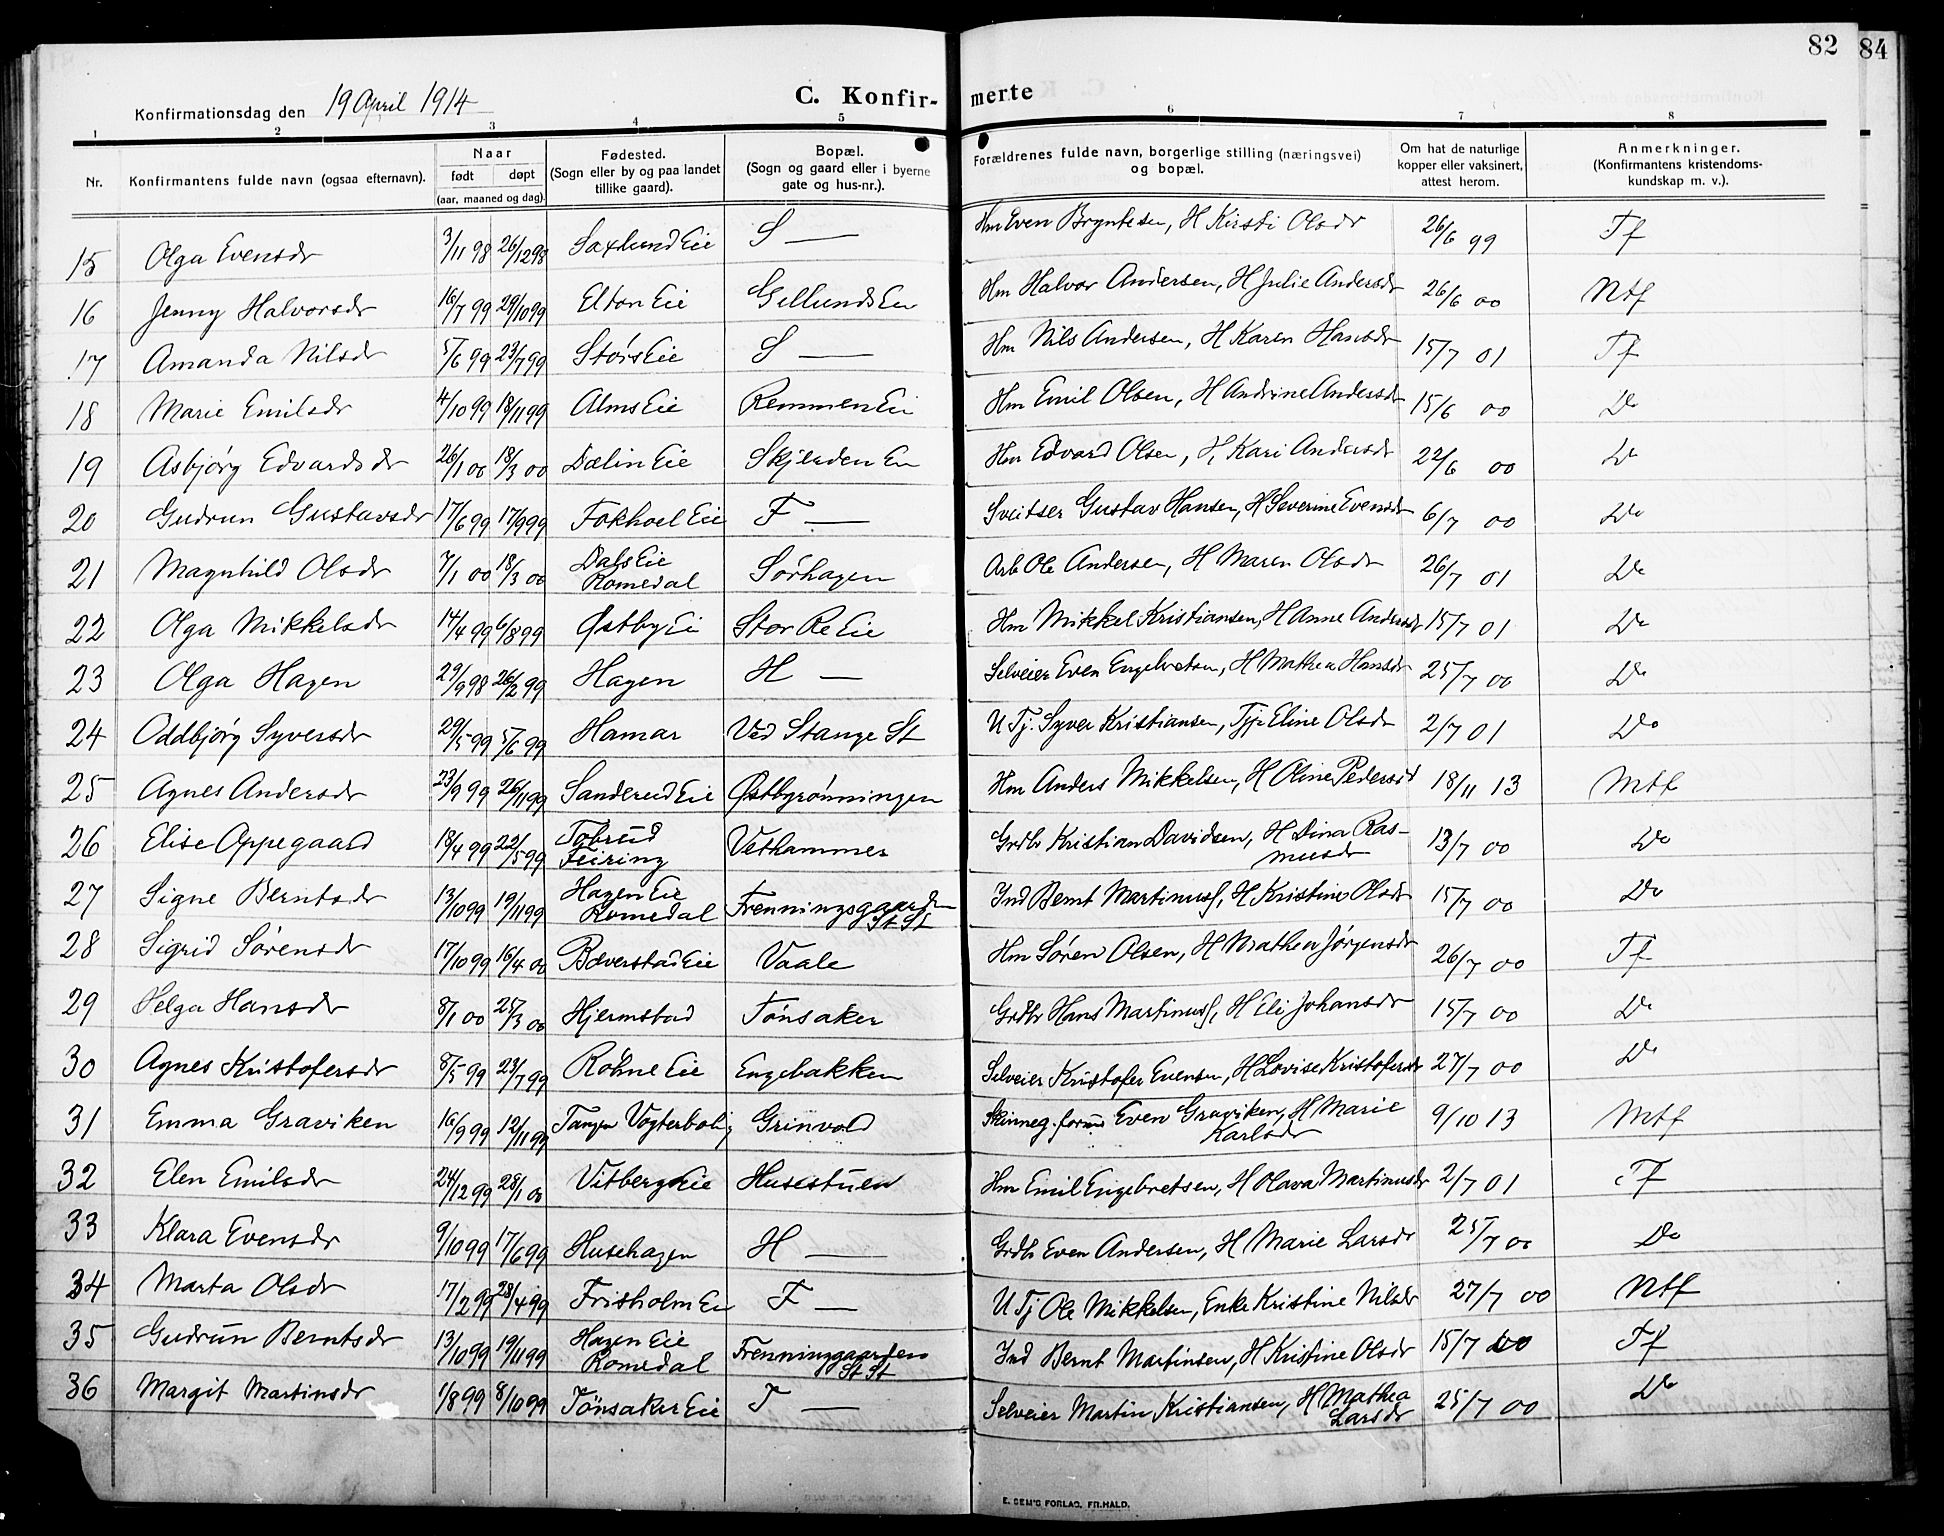 82 84
Konfirmationsdag den 19 April 1914
C. Konfir- merte
1 2 3 4 5 6 7 8
Nr. Konfirmantens fulde navn (ogsaa efternavn). Naar født døpt (aar, maaned og dag). Fødested. (Sogn eller by og paa landet tillike gaard). Bopæl. (Sogn og gaard eller i byerne gate og hus-nr.). Forældrenes fulde navn, borgerlige stilling (næringsvei) og bopæl. Om hat de naturlige kopper eller vaksinert, attest herom. Anmerkninger. (Konfirmantens kristendoms-kundskap m. v.).
15 Olga Evensdr 3/11 98 26/12 98 Saxlund Eie S — Hm Even Bryntesen, H Kirsti Olsdr 26/6 99 Tf
16 Jenny Halvorsdr 16/7 99 29/10 99 Elton Eie Gillunds Eie Hm Halvor Andersen, H Julie Andersdr 26/6 00 Mtf
17 Amanda Nilsdr 5/6 99 23/7 99 Störs Eie S — Hm Nils Andersen, H Karen Hansdr 15/7 01 Tf
18 Marie Emilsdr 4/10 99 18/11 99 Alms Eie Remmen Ei Hm Emil Olsen, H Andrine Andersdr 15/6 00 Do
19 Asbjörg Edvardsdr 26/1 00 18/3 00 Dælin Eie Skjerden Eie Hm Edvard Olsen, H Kari Andersdr 22/6 00 Do
20 Gudrun Gustavsdr 17/6 99 17/9 99 Fokhoel Eie F — Sveitser Gustav Hansen, H Severine Evensdr 6/7 00 Do
21 Magnhild Olsdr 7/1 00 18/3 00 Dals Eie Romedal Sörhagen Arb Ole Andersen, H Maren Olsdr 26/7 01 Do
22 Olga Mikkelsdr 14/4 99 6/8 99 Østby Ei Stor Re Eie Hm Mikkel Kristiansen, H Anne Andersdr 15/7 01 Do
23 Olga Hagen 29/9 98 26/2 99 Hagen H — Selveier Even Engebretsen, H Mathea Hansdr 25/7 00 Do
24 Oddbjörg Syversdr 29/5 99 5/6 99 Hamar Ved Stange St U Tj. Syver Kristiansen, Tjp Eline Olsdr 2/7 01 Do
25 Agnes Andersdr 23/9 99 26/11 99 Sandered Eie Østbyrönningen Hm Anders Mikkelsen, H Oline Pedersd 18/11 13 Mtf
26 Elise Oppegaard 18/4 99 22/5 99 Tobrud Feiring Vethammer Grdbr Kristian Davidsen, H Dina Ras-
musdr 13/7 00 Do
27 Signe Berntsdr 13/10 99 19/11 99 Hagen Eie Romedal Frenningsgaarden St St Ind Bernt Martinus., H Kristine Olsdr 15/7 00 Do
28 Sigrid Sörensdr 17/10 99 16/4 00 Bæverstad Eie Vaale Hm Sören Olsen, H Mathea Jörgensdr 26/7 00 Tf
29 Helga Hansdr 8/1 00 25/3 00 Hjermstad Tönsaker Grdbr Hans Martinus., H Eli Johansdr 15/7 00 Do
30 Agnes Kristofersdr 8/5 99 23/7 99 Röhne Eie Engebakken Selveier Kristofer Evensen, H Lovise Kristofersdr 27/7 00 Do
31 Emma Graviken 16/9 99 12/11 99 Tangen Vogterbolig Grinvold Skinneg. form Even Graviken, H Marie
Karlsdr 9/10 13 Mtf
32 Elen Emilsdr 24/12 99 28/1 00 Vitberg Eie Husestuen Hm Emil Engebretsen, H Olava Martinusdr 2/7 01 Tf
33 Klara Evensdr 9/10 99 17/6 99 Husehagen H — Grdbr Even Andersen, H Marie Larsdr 25/7 00 Do
34 Marta Olsdr 17/2 99 28/4 99 Frisholm Eie F — U Tj Ole Mikkelsen, Enke Kristine Nilsdr 27/7 00 Mtf
35 Gudrun Berntsdr 13/10 99 19/11 99 Hagen Eie Romedal Frenninggaarden St St Ind Bernt Martinsen, H Kristine Olsdr 15/7 00 Tf
36 Margit Martinsdr 1/8 99 8/10 99 Tönsaker Eie T — Selveier Martin Kristiansen, H Mathea
Larsdr 25/7 00 Do
E. SEM'S FORLAG, FR.HALD.